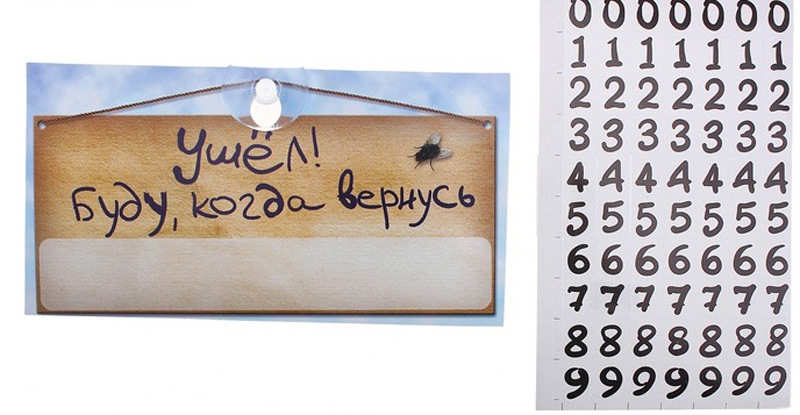 Ушёл!
Буду, когда вернусь
0 0 0 0 0 0 0
1 1 1 1 1 1 1
2 2 2 2 2 2 2
3 3 3 3 3 3 3
4 4 4 4 4 4 4
5 5 5 5 5 5 5
6 6 6 6 6 6 6
7 7 7 7 7 7 7
8 8 8 8 8 8 8
9 9 9 9 9 9 9